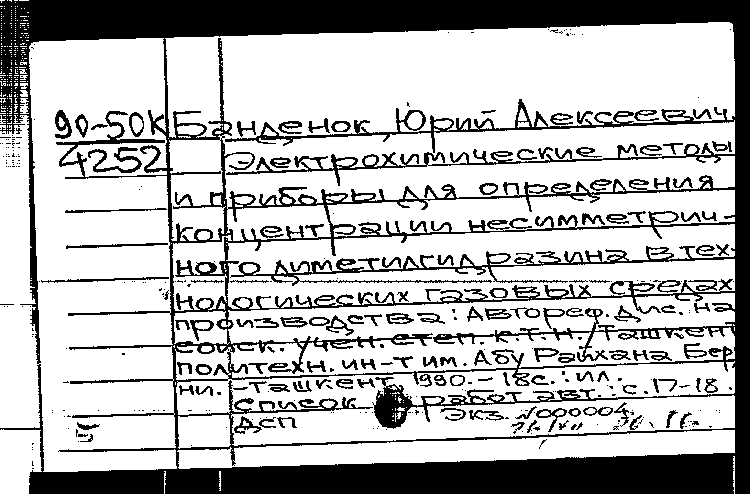 90-50К Банденок, Юрий Алексеевич.
4252 Электрохимические методы
и приборы для определения
концентрации несимметрич-
ного диметилгидразина в тех-
нологических газовых средах
производства: Автореф. дис. на
соиск. учен. степ. к.т.н./Ташкент
политехн. ин-т им. Абу Райхана Бер
ни. -Ташкент, 1990.-18с.: ил.
Список работ авт.: с. 17-18.
ДСП Экз. №000004
5